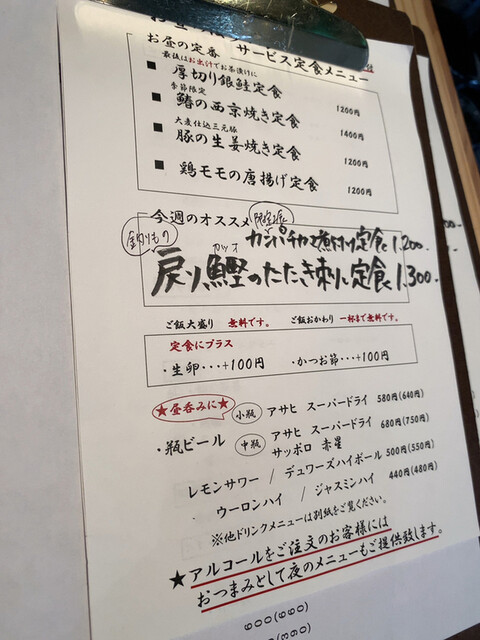 サービス定食メニュー
お昼の定番
最後はお出汁でお茶漬けに
■ 厚切り銀鮭定食 1200円
季節限定
■ 鰆の西京焼き定食 1400円
大麦仕込三元豚
■ 豚の生姜焼き定食 1200円
■ 鶏モモの唐揚げ定食 1200円
今週のオススメ 限定食
釣りもの
カンパチカマ煮付け定食 1,200-
カツオ
戻り鰹のたたき刺し定食 1,300-
ご飯大盛り 無料です。 ご飯おかわり 一杯まで無料です。
定食にプラス
・生卵・・・+100円 ・かつお節・・・+100円
★昼呑みに★
小瓶 アサヒ スーパードライ 580円(640円)
・瓶ビール 中瓶 アサヒ スーパードライ 680円(750円)
サッポロ 赤星
レモンサワー / デュワーズハイボール 500円(550円)
ウーロンハイ / ジャスミンハイ 440円(480円)
※他ドリンクメニューは別紙をご覧ください。
★アルコールをご注文のお客様には
おつまみとして夜のメニューもご提供致します。
600(660)